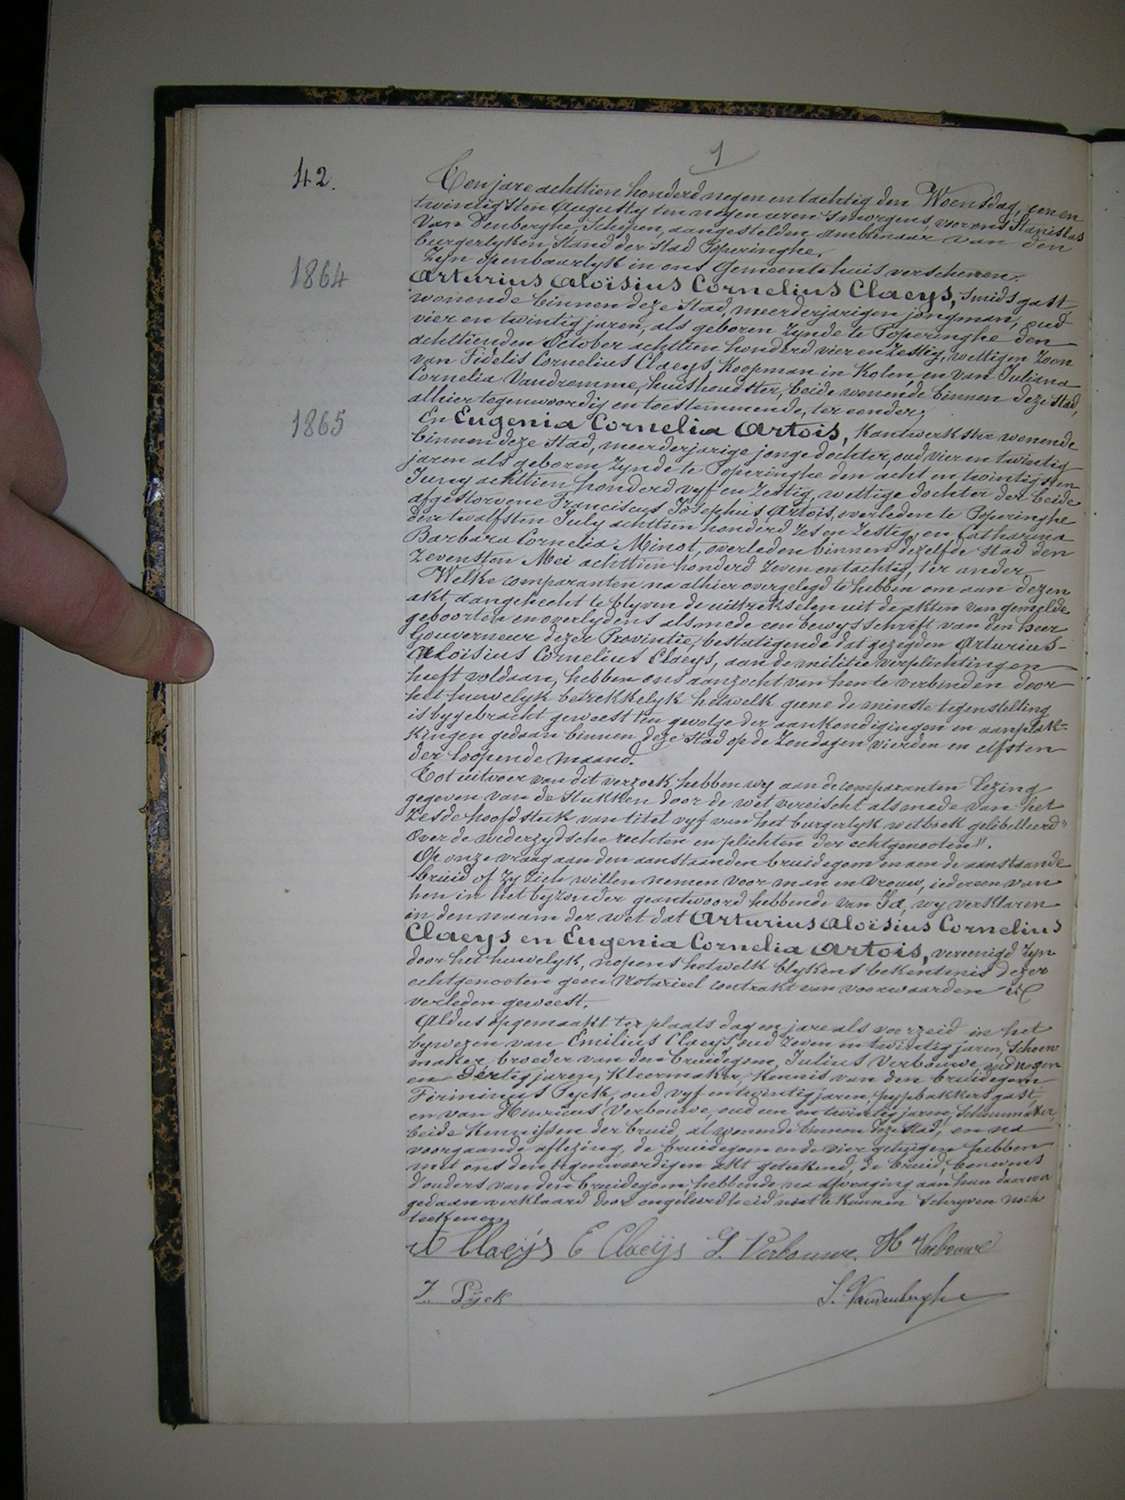 1
42.
Ten jare achttien honderd negen en tachtig den Woensdag, een en
twintigsten Augusty ten negen uren 's morgens, voor ons Stanislas
Van Denberghe, Schepen, aangestelden Ambtenaar van den
burgerlyken Stand der Stad Poperinghe.
Zyn openbaarlyk in ons Gemeentehuis verschenen.
1864
Arturius Aloïsius Cornelius Claeys, Smids gast
wonende binnen deze Stad, meerderjarigen jongman, oud
vier en twintig jaren, als geboren zynde te Poperinghe den
achttienden October achttien honderd vier en zestig, wettigen zoon
van Fidelis Cornelius Claeys, Koopman in Kolen, en van Juliana
Cornelia Vandromme, huishoudster, beide wonende binnen deze stad,
alhier tegenwoordig en toestemmende, ter eender;
1865
En Eugenia Cornelia Artois, Kantwerkster wonende
binnen deze Stad, meerderjarige jonge dochter, oud vier en twintig
jaren als geboren zynde te Poperinghe den acht en twintigsten
Juny achttien honderd vyf en zestig, wettige dochter der beide
afgestorvene Franciscus Josephus Artois, overleden te Poperinghe
den twalfsten July achttien honderd zes en zestig, en Catharina
Barbara Cornelia Minot, overleden binnen dezelfde stad den
zevensten Mei achttien honderd zeven en tachtig, ter ander.
Welke comparanten na alhier overgelegd te hebben om aan dezen
akt aangehecht te blyven de uittrekselen uit de akten van gemelde
geboorten en overlydens alsmede een bewysschrift van den heer
Gouverneur dezer Provintie, bestatigende dat gezegden Arturius-
Aloïsius Cornelius Claeys, aan de militie verplichtingen
heeft voldaan, hebben ons aanzocht van hen te verbinden door
het huwelyk betrekkelyk hetwelk geene de minste tegenstelling
is bygebracht geweest ten gevolge der aankondigingen en aanplak=
kingen gedaan binnen deze Stad op de Zondagen vierden en elfsten
der loopende maand.
Tot uitvoer van dit verzoek hebben wy aan de comparanten lezing
gegeven van de Stukken door de wet vereischt alsmede van het
zesde hoofdstuk van titel vyf van het burgerlyk wetboek gelibelleerd"
Over de wederzydsche rechten en plichten der echtgenooten".
Op onze vraag aan den aanstaanden bruidegom en aan de aanstaande
bruid of zy zich willen nemen voor man en vrouw, iedereen van
hen in het byzonder geantwoord hebbende van Ja, wy verklaren
in den naam der wet dat Arturius Aloïsius Cornelius
Claeys en Eugenia Cornelia Artois, vereenigd zyn
door het huwelyk, nopens hetwelk blykens bekentenis dezer
echtgenoten geen Notarieel contrakt van voorwaarden is
verleden geweest.
Aldus opgemaakt ter plaats dag en jare als voorzeid in het
bywezen van Emilius Claeys, oud zeven en twintig jaren, Schoen
maker, broeder van den bruidegom, Julius Verbouwe, oud negen
en dertig jaren, Kleermaker, Kennis van den bruidegom
Firminus Pyck, oud vyf en twintig jaren, pypbakkers gast,
en van Henricus Verbouwe, oud een en twintig jaren, Schoenmaker,
beide Kennissen der bruid, al wonende binnen deze Stad, en na
voorgaande aflezing, de bruidegom en de vier getuigen hebben
met ons den tegenwoordigen akt geteekend, de bruid, benevens
d'ouders van den bruidegom hebbende na afvraging aan hun daarvan
gedaan verklaard door ongeleerdheid niet te kunnen schryven noch
teekenen.
A Claeÿs E Claeÿs J. Verbouwe. H Verbouwe
F. Pyck
S. Vandenberghe